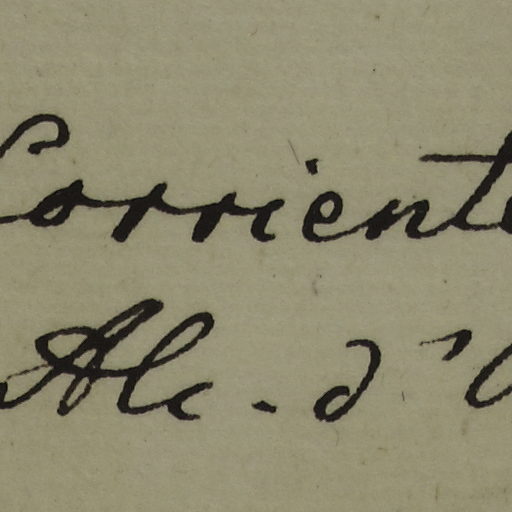 Corriente
Alc. d'O